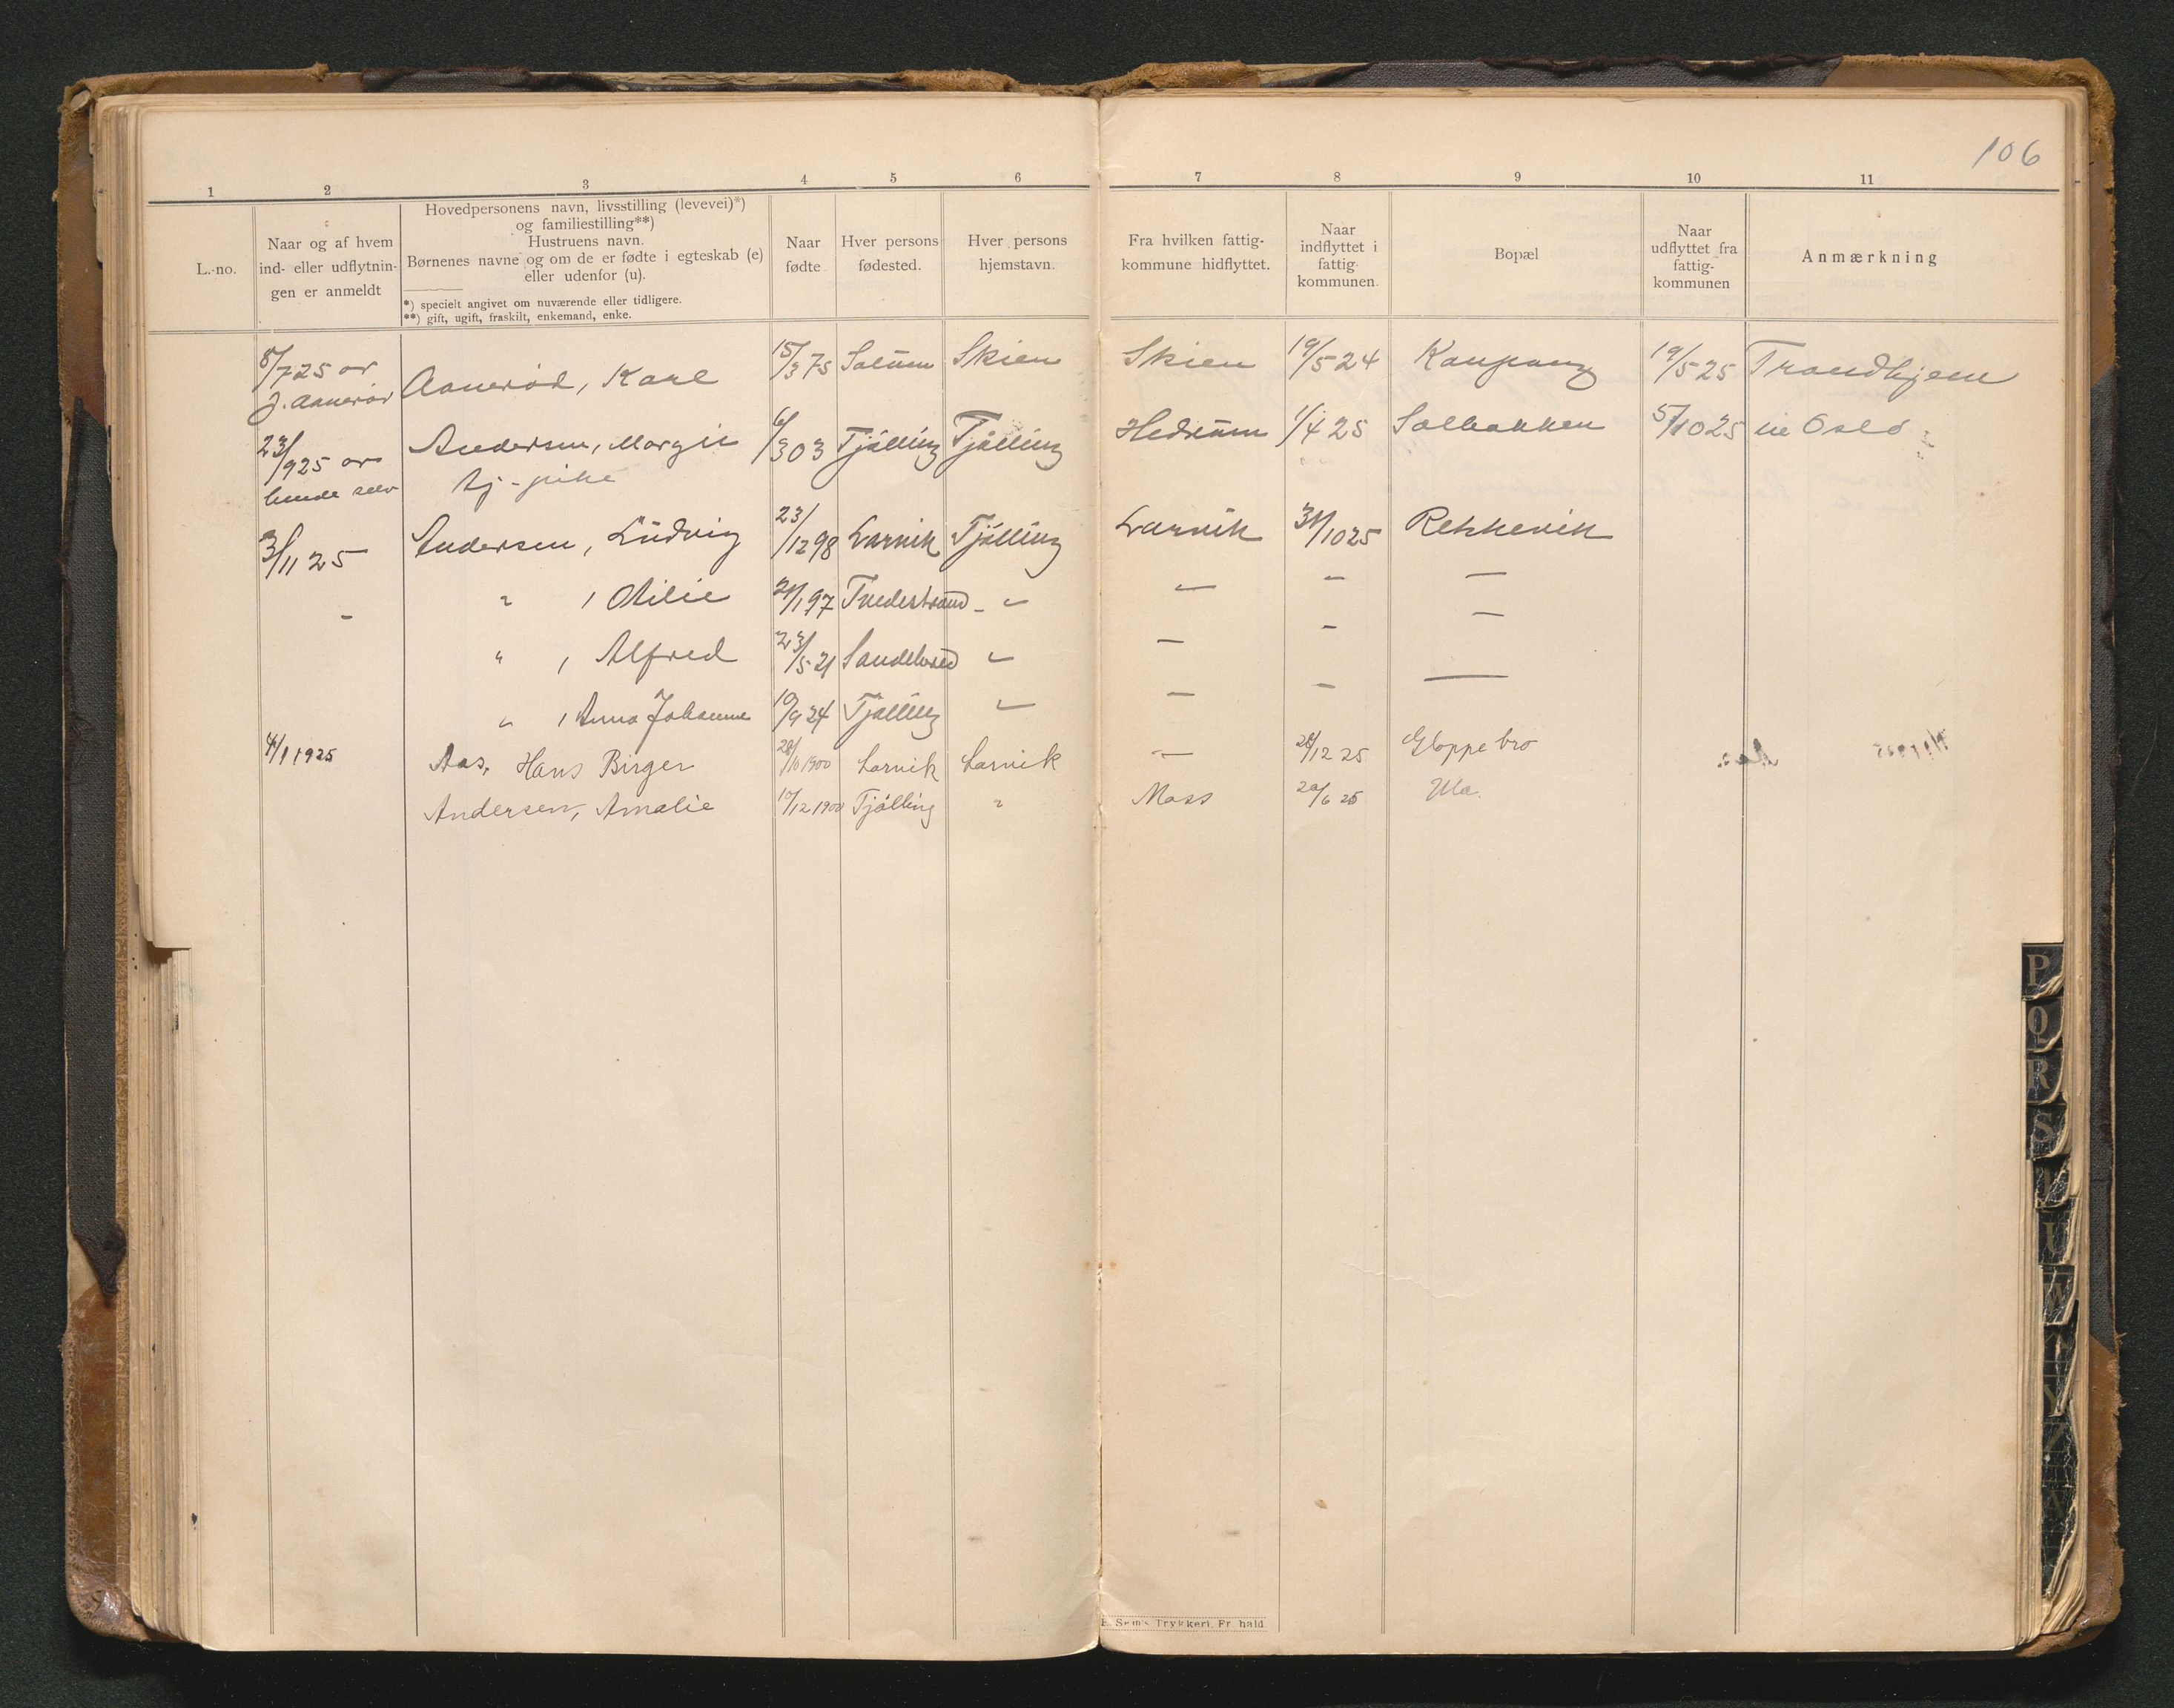 106
1 2 3 4 5 6 7 8 9 10 11
L.-no.
Naar og af hvem
ind- eller udflytnin-
gen er anmeldt
Hovedpersonens navn, livsstilling (levevei)*)
og familiestilling**)
Hustruens navn.
Børnenes navne og om de er fødte i egteskab (e)
eller udenfor (u).
*) specielt angivet om nuværende eller tidligere.
**) gift, ugift, fraskilt, enkemand, enke.
Naar
fødte
Hver persons
fødested.
Hver persons
hjemstavn.
Fra hvilken fattig-
kommune hidflyttet.
Naar
indflyttet i
fattig-
kommunen.
Bopæl
Naar
udflyttet fra
fattig-
kommunen
Anmærkning
8/7 25 av
J. Aanerød
Aanerød, Karl 15/3 75 Solum Skien Skien 19/5 24 Kaupang 19/5 25 Trondhjem
23/9 25 av
hende selv
Andersen, Margit 6/3 03 Tjölling Tjölling Hedrum 1/4 25 Solbakken 5/10 25 til Oslo
Tj-pike
3/11 25 Andersen, Ludvig 23/12 98 Larvik Tjölling Larvik 31/10 25 Rekkevik
- " , Milie 21/1 97 Tvedestrand - " — — —
" , Alfred 23/5 21 Sandeherred " — — —
" , Anna Johanne 10/9 24 Tjölling " — — —
4/1 1925 Aas, Hans Birger 28/10 1900 Larvik Larvik — 28/12 25 Gloppe bro
Andersen, Amalie 17/12 1900 Tjölling " Moss 20/6 25 Ula.
E. Sem's Trykkeri, Fr.hald.
P
Q
R
S
U
W
Y
Z